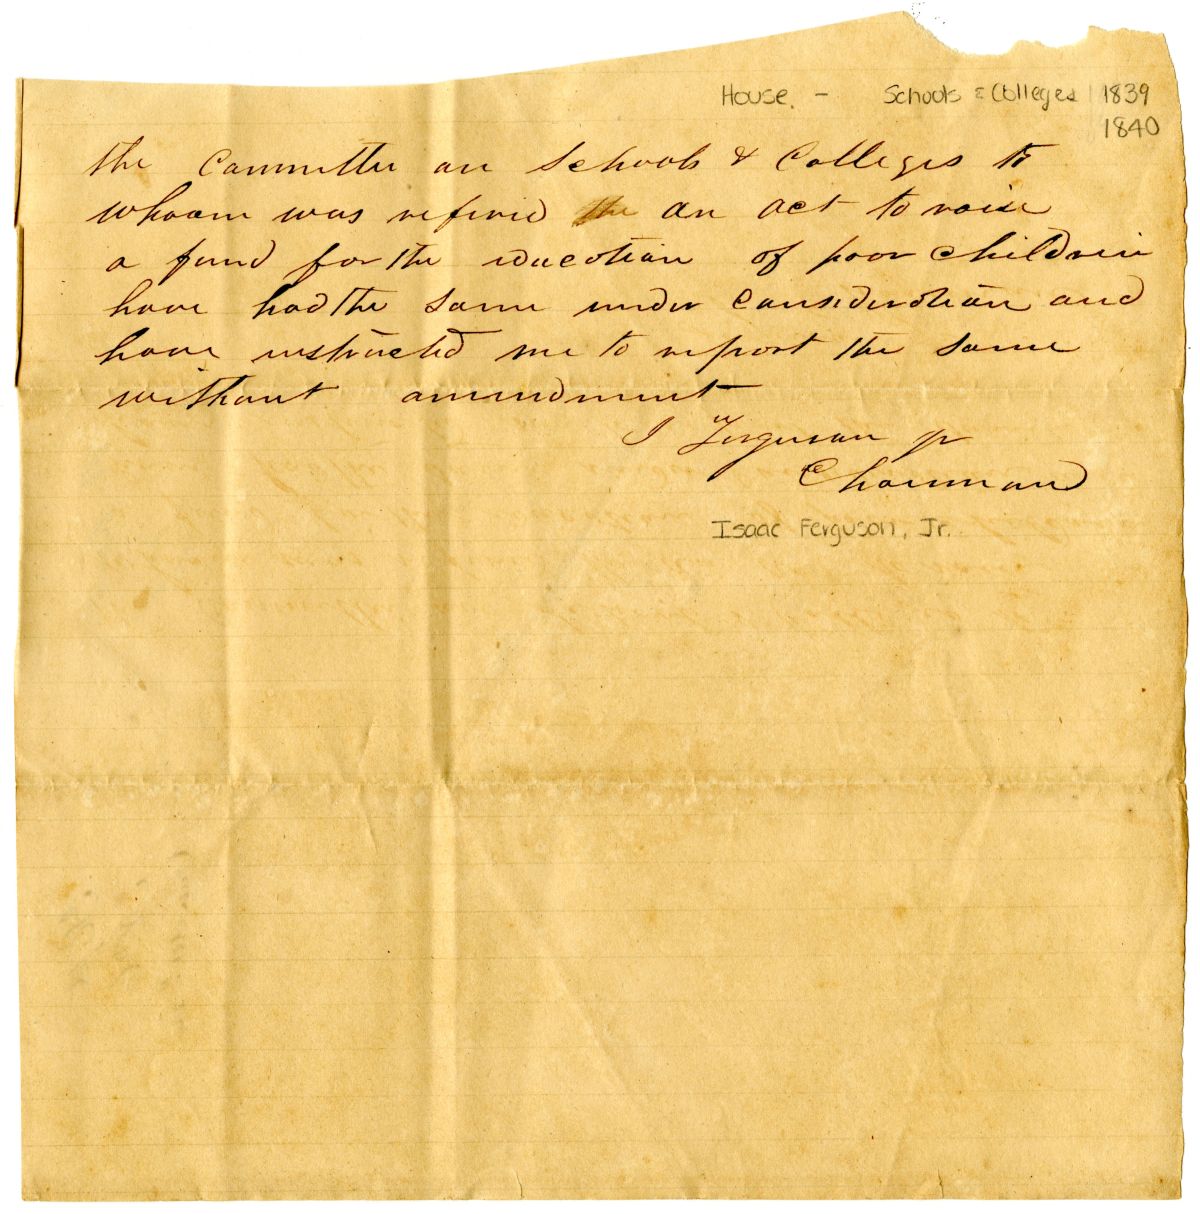 House. - Schools & Colleges 1839
1840
the Committee on Schools & Colleges to
whoom was refered the an act to raise
a fund for the education of poor children
have had the same under consideration and
have instructed me to report the same
without amendment
I Ferguson jr
Chairman
Isaac Ferguson, Jr.